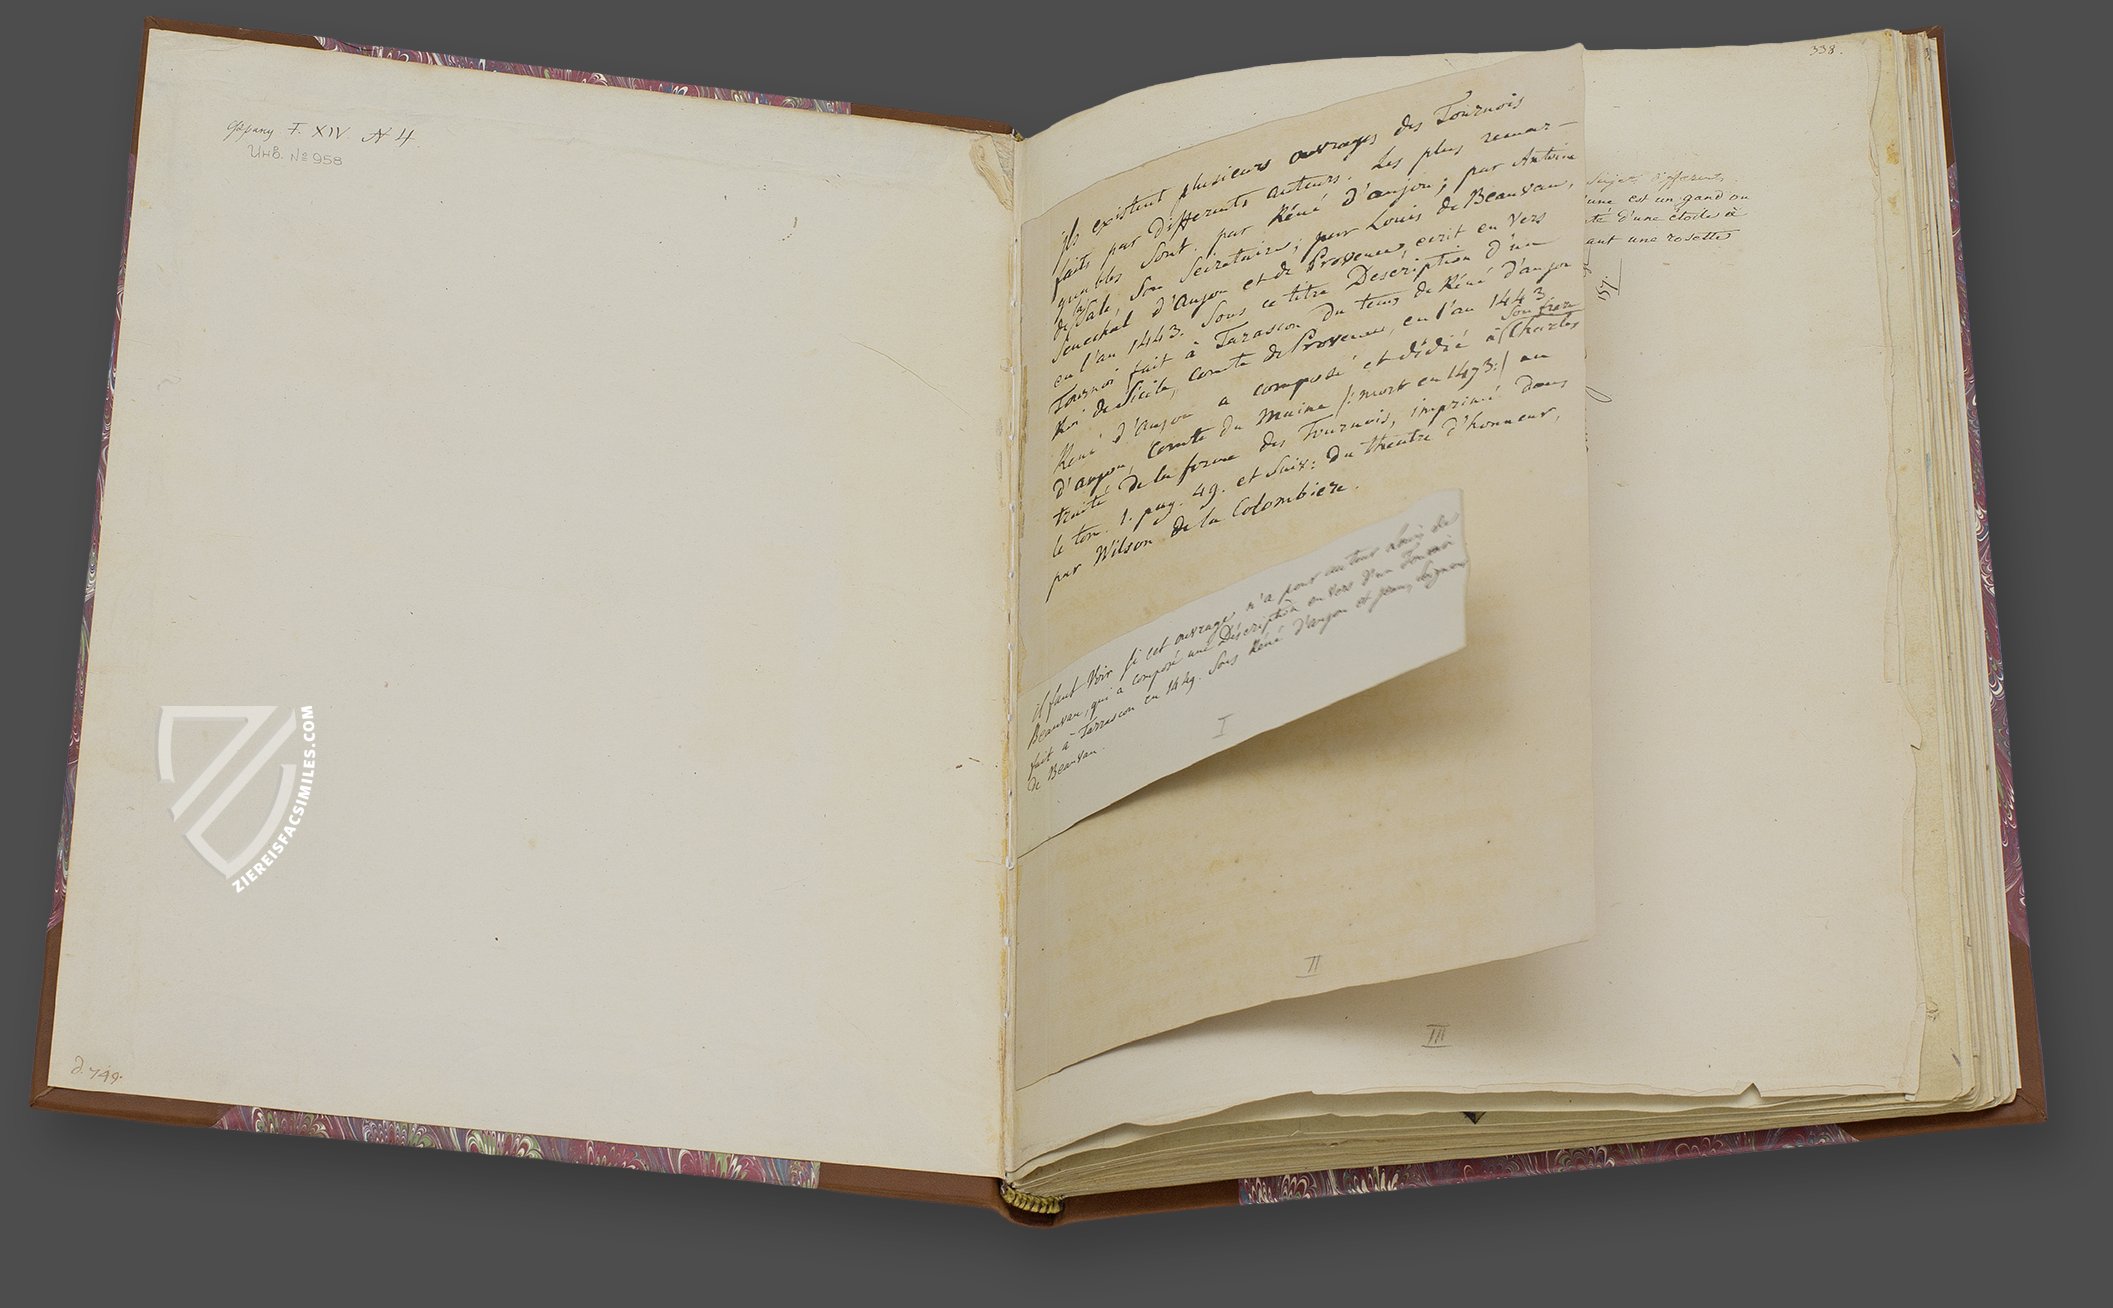 Франц. F. XIV. N 4.
Инв. № 958
д. 749.
ZIEREISFACSIMILES.COM
338.
ils existent plusieurs ouvrages des Tournois
faits par differents auteurs. Les plus remar-
quables sont par Réné d'anjou; par Antoine
de Sale, son Secretaire; par Louis de Beauvau,
Senechal d'Anjou et de Provence, ecrit en vers
en l'an 1443. sous ce titre Description d'un
Tournoi fait à Tarascon du tems de Réné d'anjou
Roi de Sicile, comte de Provence, en l'an 1443
René d'Anjou a composé et dédié à Charles
son frere
d'anjou, Comte du Maine /: mort en 1473:/ un
traité de la forme des Tournois, imprimé dans
le tom 1. pag. 49. et suiv: du theatre d'honneur,
par Wilson de la Colombiere.
il faut voir si cet ouvrage n'a pour auteur Louis de
Beauvau, qui a composé une Déscription en vers d'un Tournoi
fait à Tarrascon en 1449. sous Réné d'anjou et jean, seigneur
de Beauvau.
I
II
III
sujets differents,
l'une est un gand ou
té d'une étoile à
ant une rosette